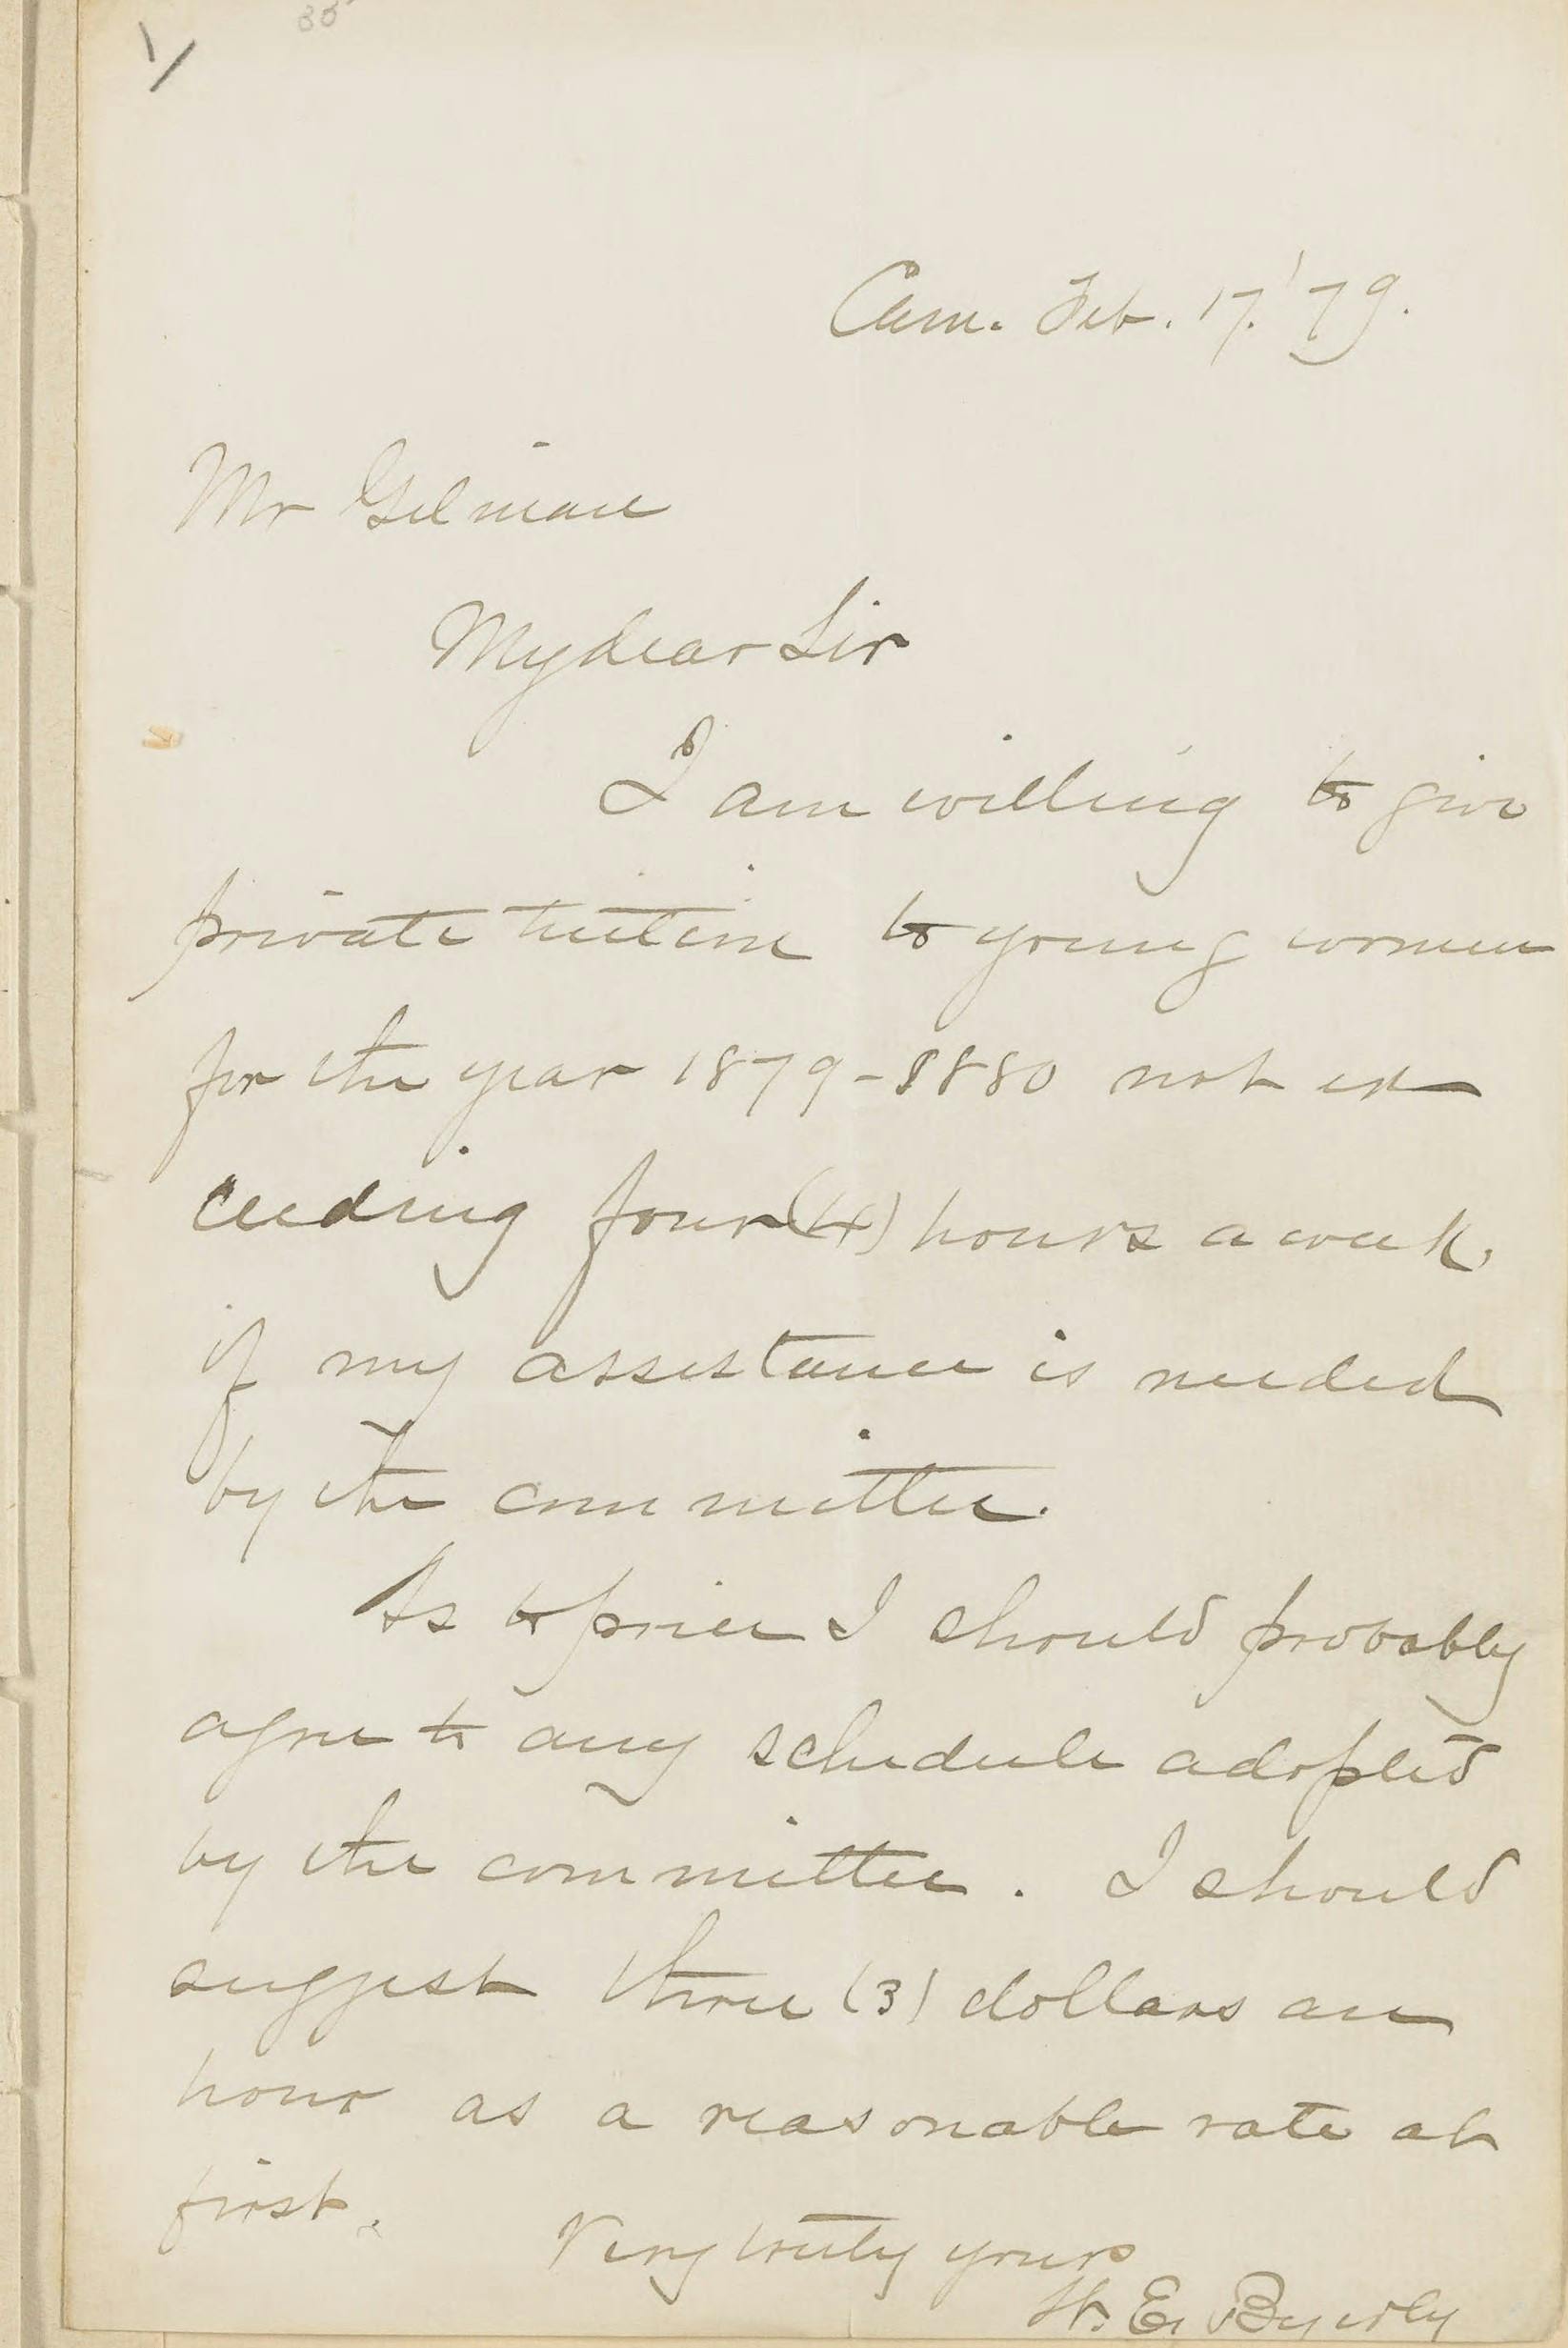 1/
35
Cam. Feb. 17. '79.
Mr Gilman
My dear Sir
I am willing to give
private tuition to young women
for the year 1879-1880 not ex
ceeding four (4) hours a week,
if my assistance is needed
by the committee.
As to price I should probably
agree to any schedule adopted
by the committee. I should
suggest three (3) dollars an
hour as a reasonable rate at
first.
Very truly yours
W. E. Byerly